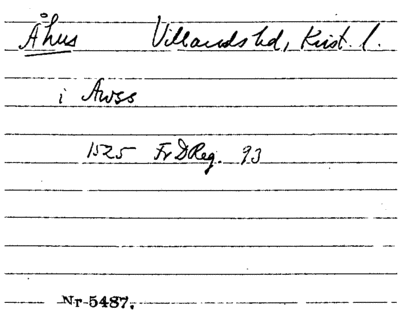 Åhus Villands hd, Krist. l.
i Awss
1525 FrDReg. 93
Nr 5487.